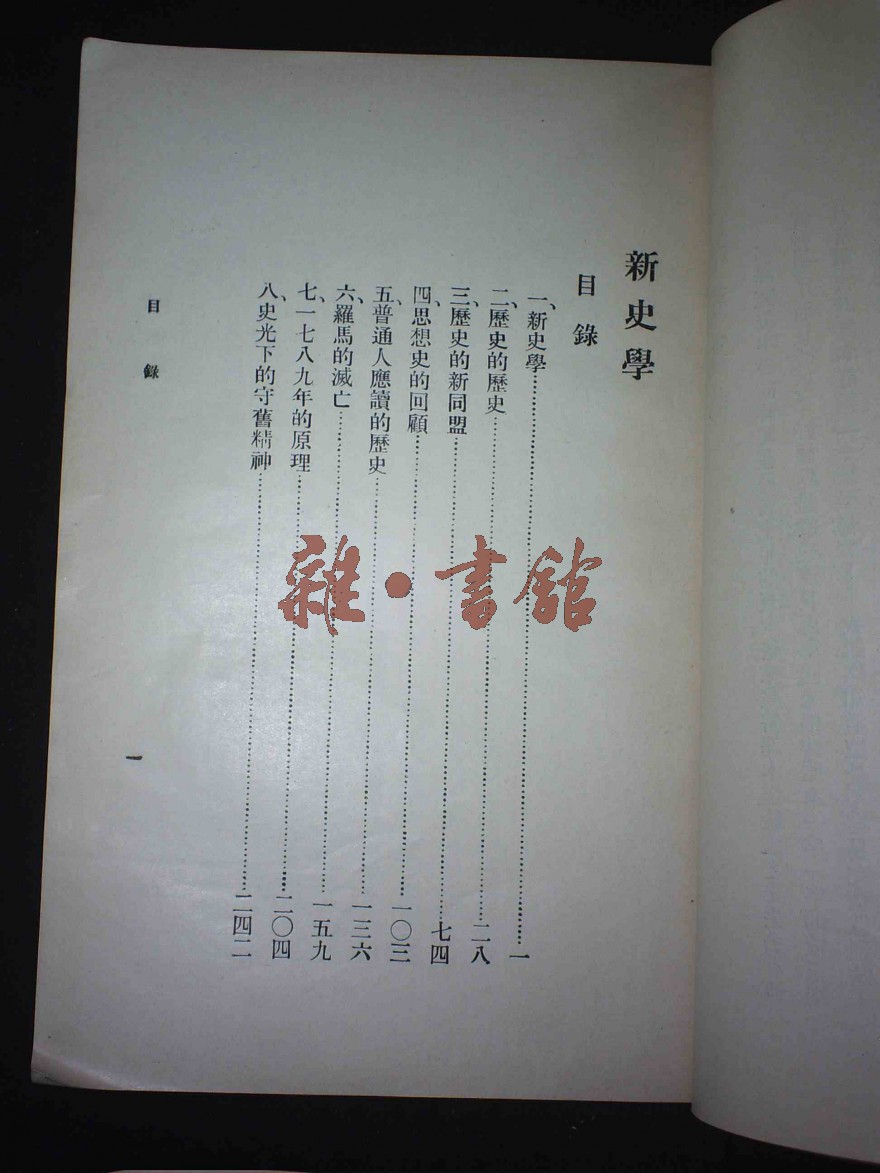 新史學
目錄
一、新史學……一
二、歷史的歷史……二八
三、歷史的新同盟……七四
四、思想史的回顧……一〇三
五、普通人應讀的歷史……一三六
六、羅馬的滅亡……一五九
七、一七八九年的原理……二〇四
八、史光下的守舊精神……二四二
目錄
一
雜·書館